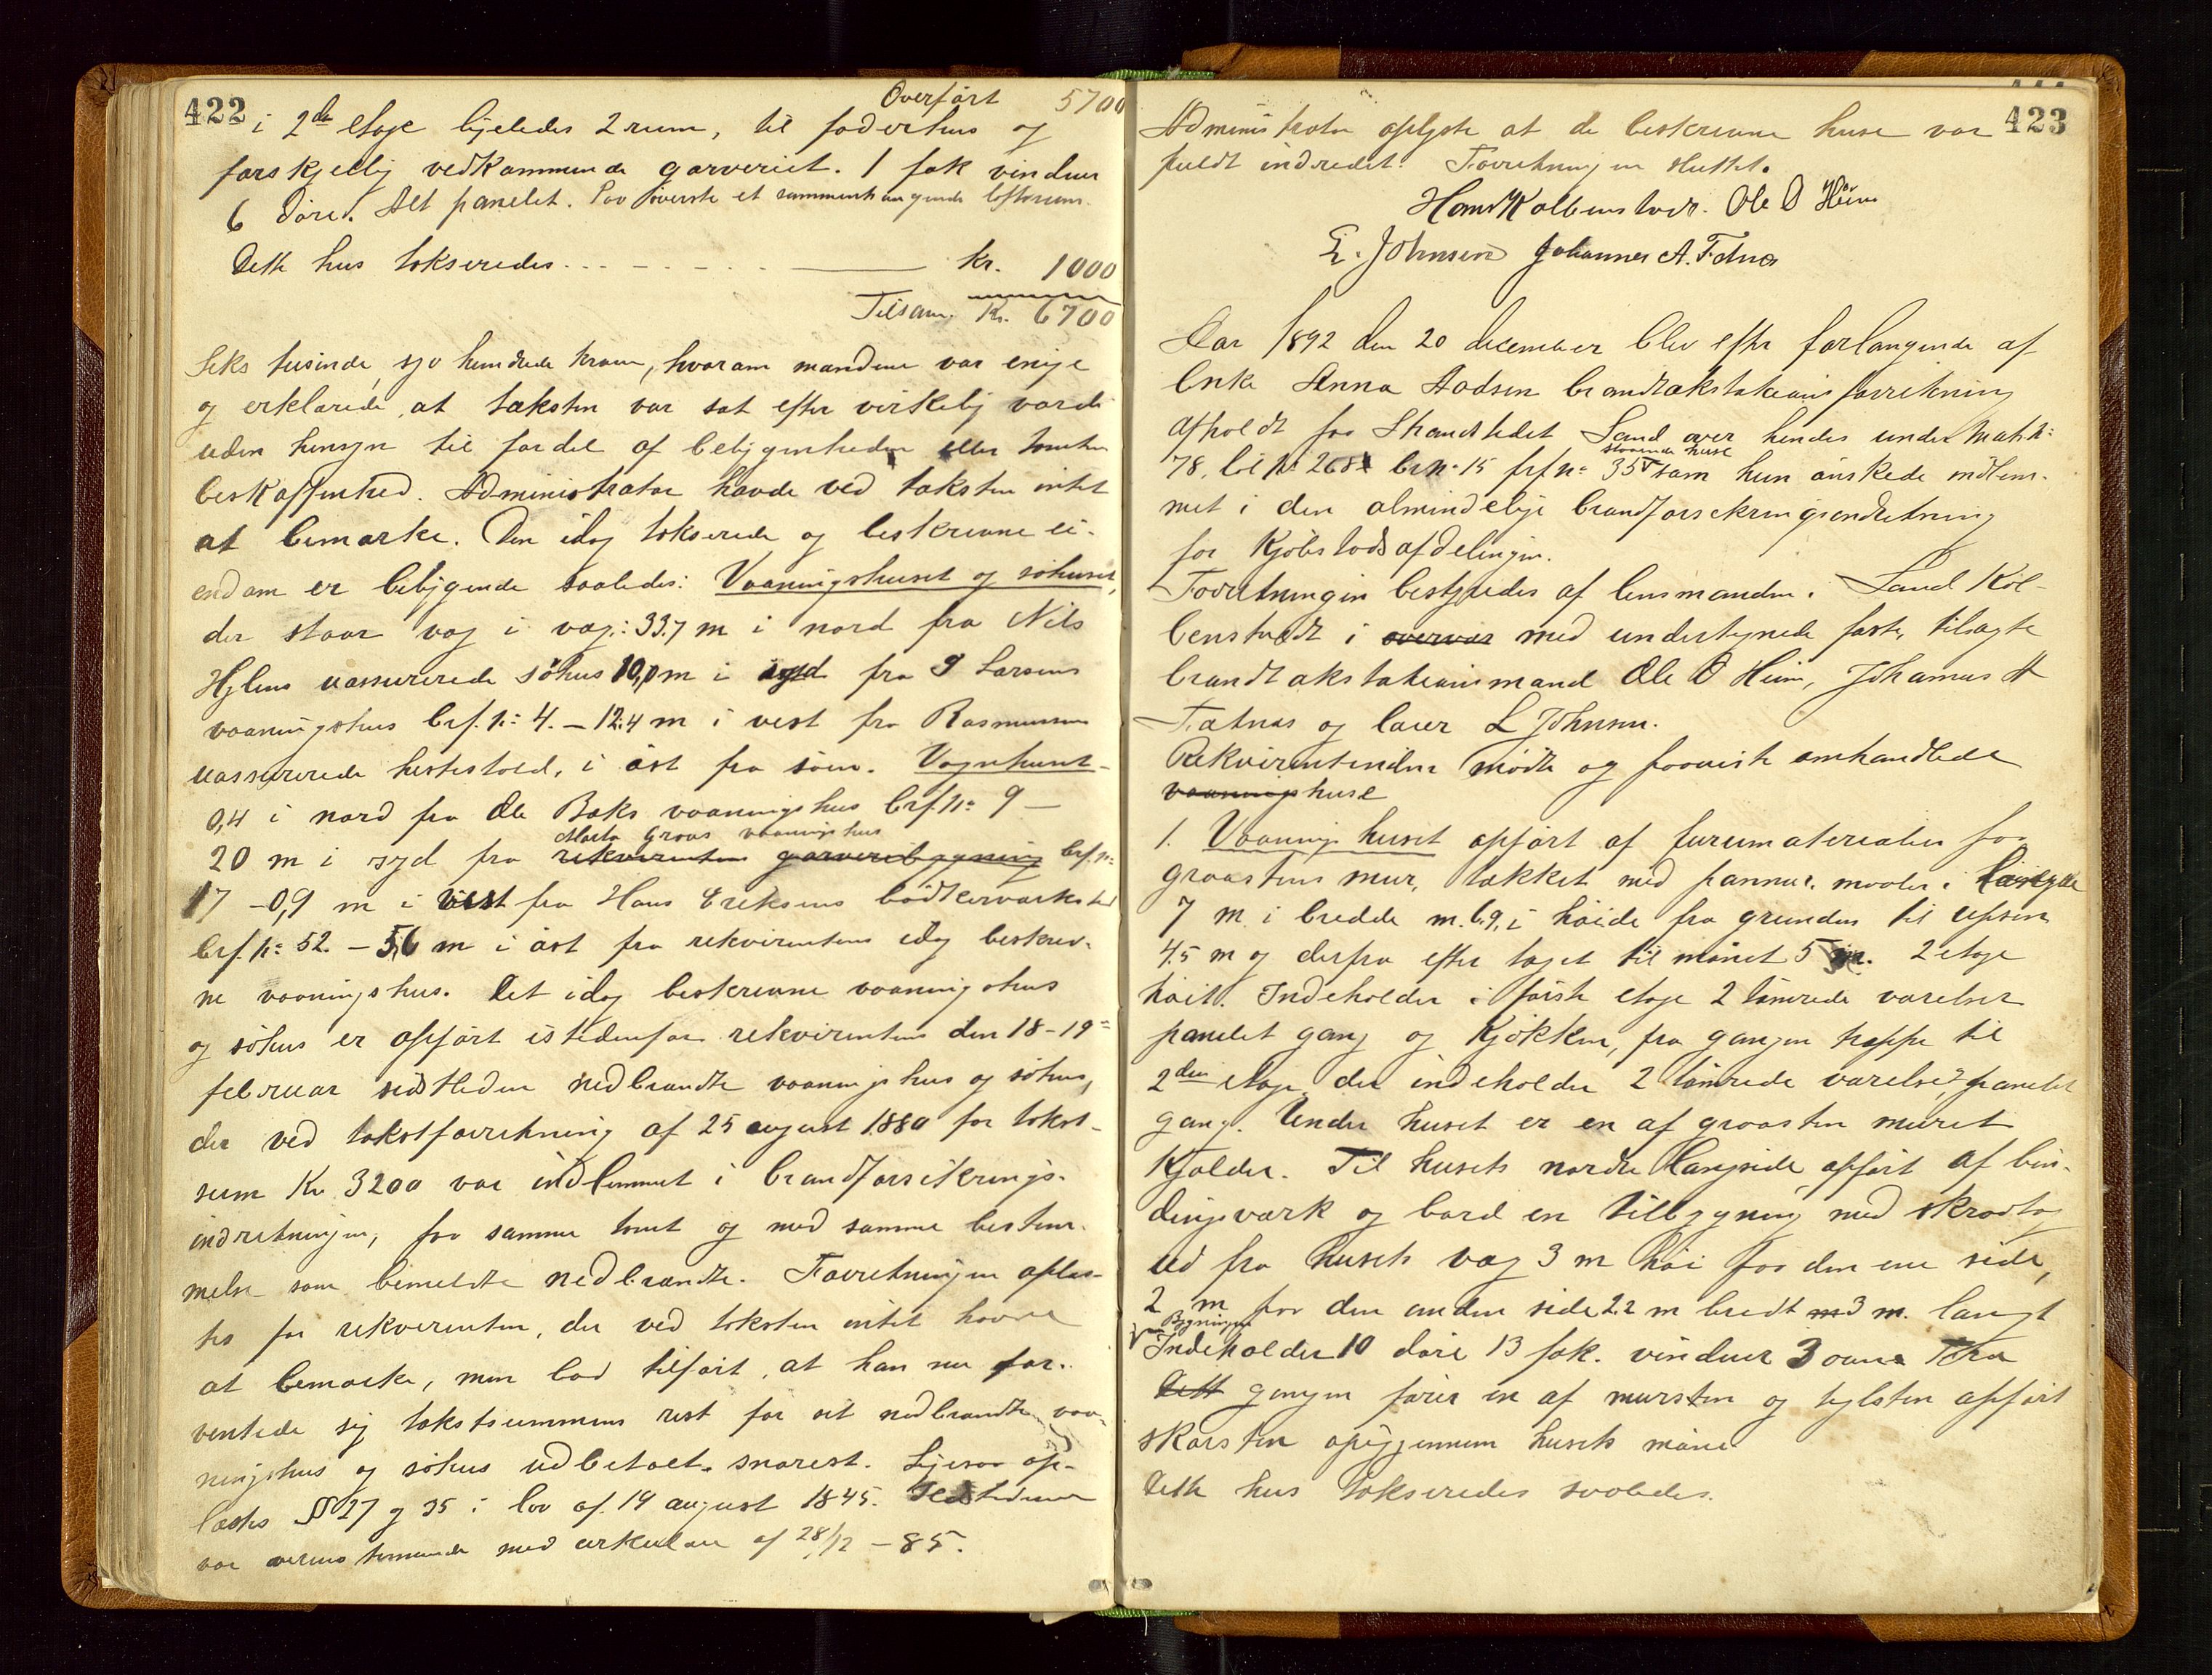 422
Overført 5700
i 2den etage ligeledes 2 rum, til foderhus og
forskjellig vedkommende garveriet. 1 fak vinduer
6 døre. Alt panelet. Paa øverste et sammenhængende loftsrum.
Dette hus takseredes . . . - . - . . Kr. 1000
Tilsam. Kr. 6700
Seks tusinde, syv hundrede kroner, hvorom mændene var enige
og erklærede, at taksten var sat efter virkelig værdi
uden hensyn til fordel af beliggenheden eller tomten
beskaffenhed. Administrator havde ved taksten intet
at bemærke. Den idag takserede og beskrevne ei-
endom er beliggende saaledes: Vaaningshuset og søhuset,
der staar væg i væg: 33.7 m i nord fra Nils
Hylens uassurerede søhus 10,0 m i syd fra I Larsens
vaaningshus brf. n: 4. – 12.4 m i vest fra Rasmussens
uassurerede hestestald, i øst fra søen. Vognhuset
0,4 i nord fra Ole Boks vaaningshus brf. n: 9 –
Marta Graas vaaningshus
20 m i syd fra rekvirenten garveribygning brf. n:
17 – 0,9 m i vest fra Hans Eriksens bødkerværksted
brf. n: 52. – 5,6 m i øst fra rekvirentens idag beskrev-
ne vaaningshus. Det idag beskrevne vaaningshus
og søhus er opført istedenfor rekvirentens den 18–19=
februar sidstleden nedbrændte vaaningshus og søhus,
der ved takstforretning af 25 august 1880 for takst-
sum Kr. 3200 var indlemmet i brandforsikrings-
indretningen, paa samme tomt og med samme bestem-
melse som bemeldte nedbrændte. Forretningen oplæs-
tes for rekvirenten, der ved taksten intet havde
at bemærke, men lod tilført, at han nu for-
ventede sig takstsummens rest for sit nedbrændte vaa-
ningshus og søhus udbetalt snarest. Ligesaa op-
læstes §§ 27 og 35 i lov af 19 august 1845. Ildstederne
var overensstemmende med cirkulære af 28/12 – 85.
423
Administrator oplyste at de beskrevne huse var
fuldt indredet. Forretningen sluttet.
Hans Kolbenstvedt. Ole O Heim
L. Johnsen Johannes A. Fatnes
Aar 1892 den 20 december blev efter forlangende af
Enke Anna Aadsen brandtakstationsforretning
afholdt paa Strandstedet Sand over hendes under Matr. n:
staaende huse
78, løb n: 268 br n: 15 frf n: 35 som hun ønskede indlem-
met i den almindelige brandforsekringsindretning
for Kjøbstadsafdelingen.
Forretningen bestyredes af lensmanden i Sand Kol-
benstvedt i overvær med undertegnede faste, tilsagte
brandtakstationsmænd Ole O Heim, Johannes A
Fatnes og laver L Johnsen.
Rekvirentinden mødte og paaviste omhandlede
vaaningshuse
1. Vaaningshuset opført af furumaterialier paa
graastens mur, tækket med panner, maaler i længde
7 m. i bredde m. 6.9, i høide fra grunden til upsen
4.5 m og derfra efter taget til mønet 5 m. 2 etage
høit. Indeholder i første etage 2 tømrede værelser
panelet gang og kjøkken, fra gangen trappe til
2den etage der indeholder 2 tømrede værelser, panelet
gang. Under huset er en af graasten muret
kjælder. Til husets nordre langside opført af bin-
dingsværk og bord en tilbygning med skraatag
ud fra husets væg 3 m høi paa den ene side,
2 m paa den anden side 2.2 m bredt m 3 m. langt
Bygningen
Indeholder 10 døre 13 fak. vinduer 3 ovne Fra
Dett gangen fører en af mursten og teglsten opført
skorsten opigjennem husets møne
Dette hus takseredes saaledes.